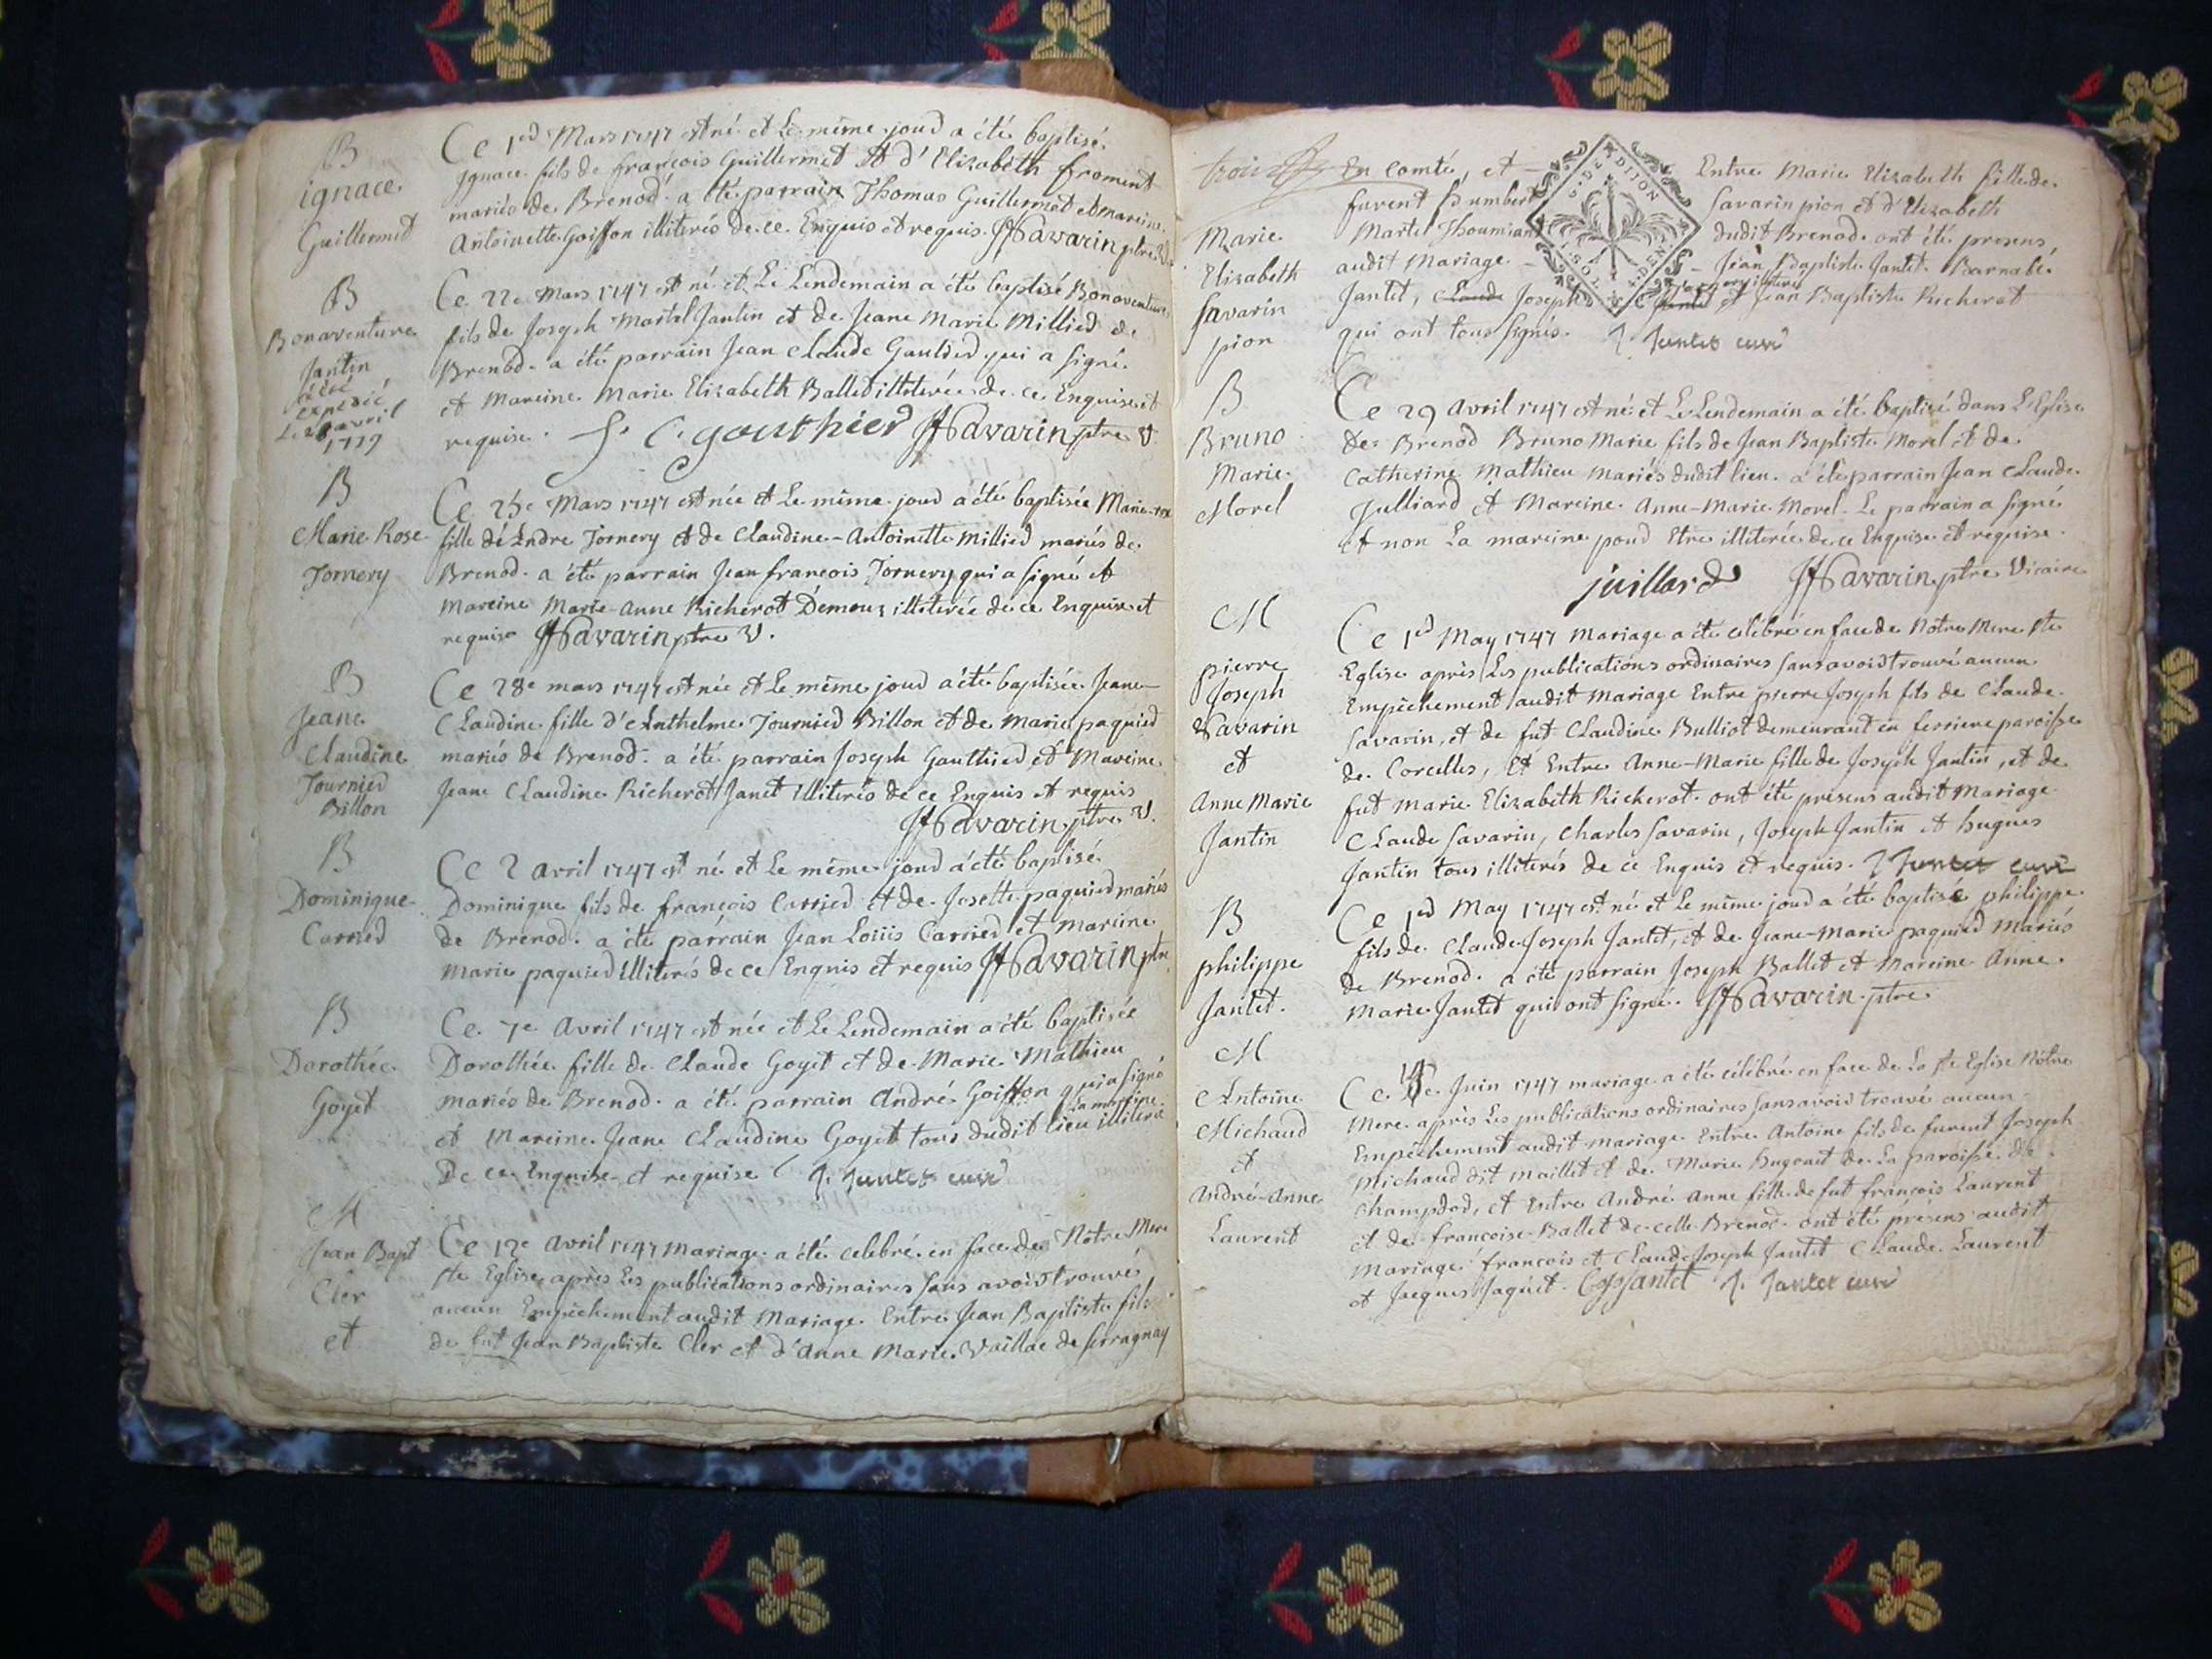 B
ignace
Guillermet
Ce 1er Mars 1747 est né et Le même jour a été baptisé
ignace fils de françois Guillermet et d'Elizabeth froment
mariés de Brenod. a été parrain Thomas Guillermet et mareine
Antoinette Goiffon illiterés de ce Enquis et requis. JHSavarin ptre V.
B
Bonaventure
Jantin
a été
expedié
Le avril
1779
Ce 22e Mars 1747 est né et Le Lendemain a été baptisé Bonaventure
fils de Joseph Martel Jantin et de Jeane Marie Millier de
Brenod. a été parrain Jean Claude Gautier qui a signé
et Mareine Marie Elizabeth Ballet illiterée de ce Enquise et
requise. J. C. gouthier JHSavarin ptre V.
B
Marie Rose
Tornery
Ce 25e Mars 1747 est née et Le même jour a été baptisée Marie-rose
fille de Andre Tornery et de Claudine-Antoinette Millier mariés de
Brenod. a été parrain Jean françois Tornery qui a signé et
mareine Marie-Anne Richerot Demeur illiterée de ce Enquise et
requise JHSavarin ptre V.
B
Jeane
Claudine
Tournier
Billon
Ce 28e mars 1747 est née et Le même jour a été baptisée Jeane-
Claudine fille d'Anthelme Tournier Billon et de Marie paquier
mariés de Brenod. a été parrain Joseph Gauthier et Mareine
Jeane Claudine Richerot Janet illiterés de ce Enquis et requis
JHSavarin ptre V.
B
Dominique
Carrier
Ce 2 avril 1747 est né et Le même jour a été baptisé
Dominique fils de françois Carrier et de Josette paquier mariés
de Brenod. a été parrain Jean Loüis Carrier et mareine
Marie paquier illiterés de ce Enquis et requis JHSavarin ptre
B
Dorothée
Goyet
Ce 7e Avril 1747 est née et Le Lendemain a été baptisée
Dorothée fille de Claude Goyet et de Marie Mathieu
mariés de Brenod. a été parrain André Goiffon qui a signé
La mareine
et Mareine Jeane Claudine Goyet tous dudit lieu illiterée
De ce Enquise et requise J. Jantet curé
M
Jean Bapt
Cler
et
Ce 12e avril 1747 Mariage a été celebré en face de Notre Mere
ste Eglise après Les publications ordinaires sans avoir trouvés
aucun Empêchement audit Mariage Entre Jean Baptiste fils
de fut Jean Baptiste Cler et d'Anne Marie Vaillac de Serragnay
trois
Marie
Elizabeth
Savarin
pion
G. DE DIJON
SOL DEN
En comté, et Entre Marie Elizabeth fille de
furent Humbert Savarin pion et d'Elizabeth
Martel Thoumiand dudit Brenod. ont été presens
audit Mariage Jean Baptiste Jantet. Barnabé
Jantet, Claude Joseph Jantet et Jean Baptiste Richerot
qui ont tous signés. J. Jantet curé
B
Bruno
Marie
Morel
Ce 29 Avril 1747 est né et Le Lendemain a été baptisé dans L'Eglise
De Brenod Bruno Marie fils de Jean Baptiste Morel et de
Catherine Mathieu Mariés dudit lieu. a été parrain Jean Claude
Julliard et Mareine Anne-Marie Morel. Le parrain a signé
et non La mareine pour Etre illiterée de ce Enquise et requise.
juillard JHSavarin ptre Vicaire
M
pierre
Joseph
Savarin
et
Anne Marie
Jantin
Ce 1er May 1747 Mariage a été celebré en face de Notre Mere ste
Eglise après Les publications ordinaires sans avoir trouvé aucun
Empêchement audit Mariage Entre pierre Joseph fils de Claude
Savarin, et de fut Claudine Bulliot demeurant en ferriere paroisse
de Corcelles, Et Entre Anne-Marie fille de Joseph Jantin, et de
fut Marie Elizabeth Richerot. ont été présens audit Mariage
Claude Savarin, Charles Savarin, Joseph Jantin et hugues
Jantin tous illiterés de ce Enquis et requis. J Jantet curé
B
philippe
Jantet.
Ce 1er May 1747 est né et Le même jour a été baptisé philippe
fils de Claude Joseph Jantet, et de Jeane-Marie paquier Mariés
de Brenod. a été parrain Joseph Ballet et Mareine Anne
Marie Jantet qui ont signé. JHSavarin ptre
M
Antoine
Michaud
et
André-Anne
Laurent
Ce Juin 1747 mariage a été célébré en face de La ste Eglise Nôtre
Mere après Les publications ordinaires sans avoir trouvé aucun
Empêchement audit mariage Entre Antoine fils de furent Joseph
Michaud dit maillet et de Marie hugonet de La paroisse de
Champdor, et Entre André Anne fille de fut françois Laurent
et de françoise Ballet de celle Brenod. ont été présens audit
Mariage françois et Claude Joseph Jantet Claude Laurent
et Jacques Jaquet. J. Jantet curé